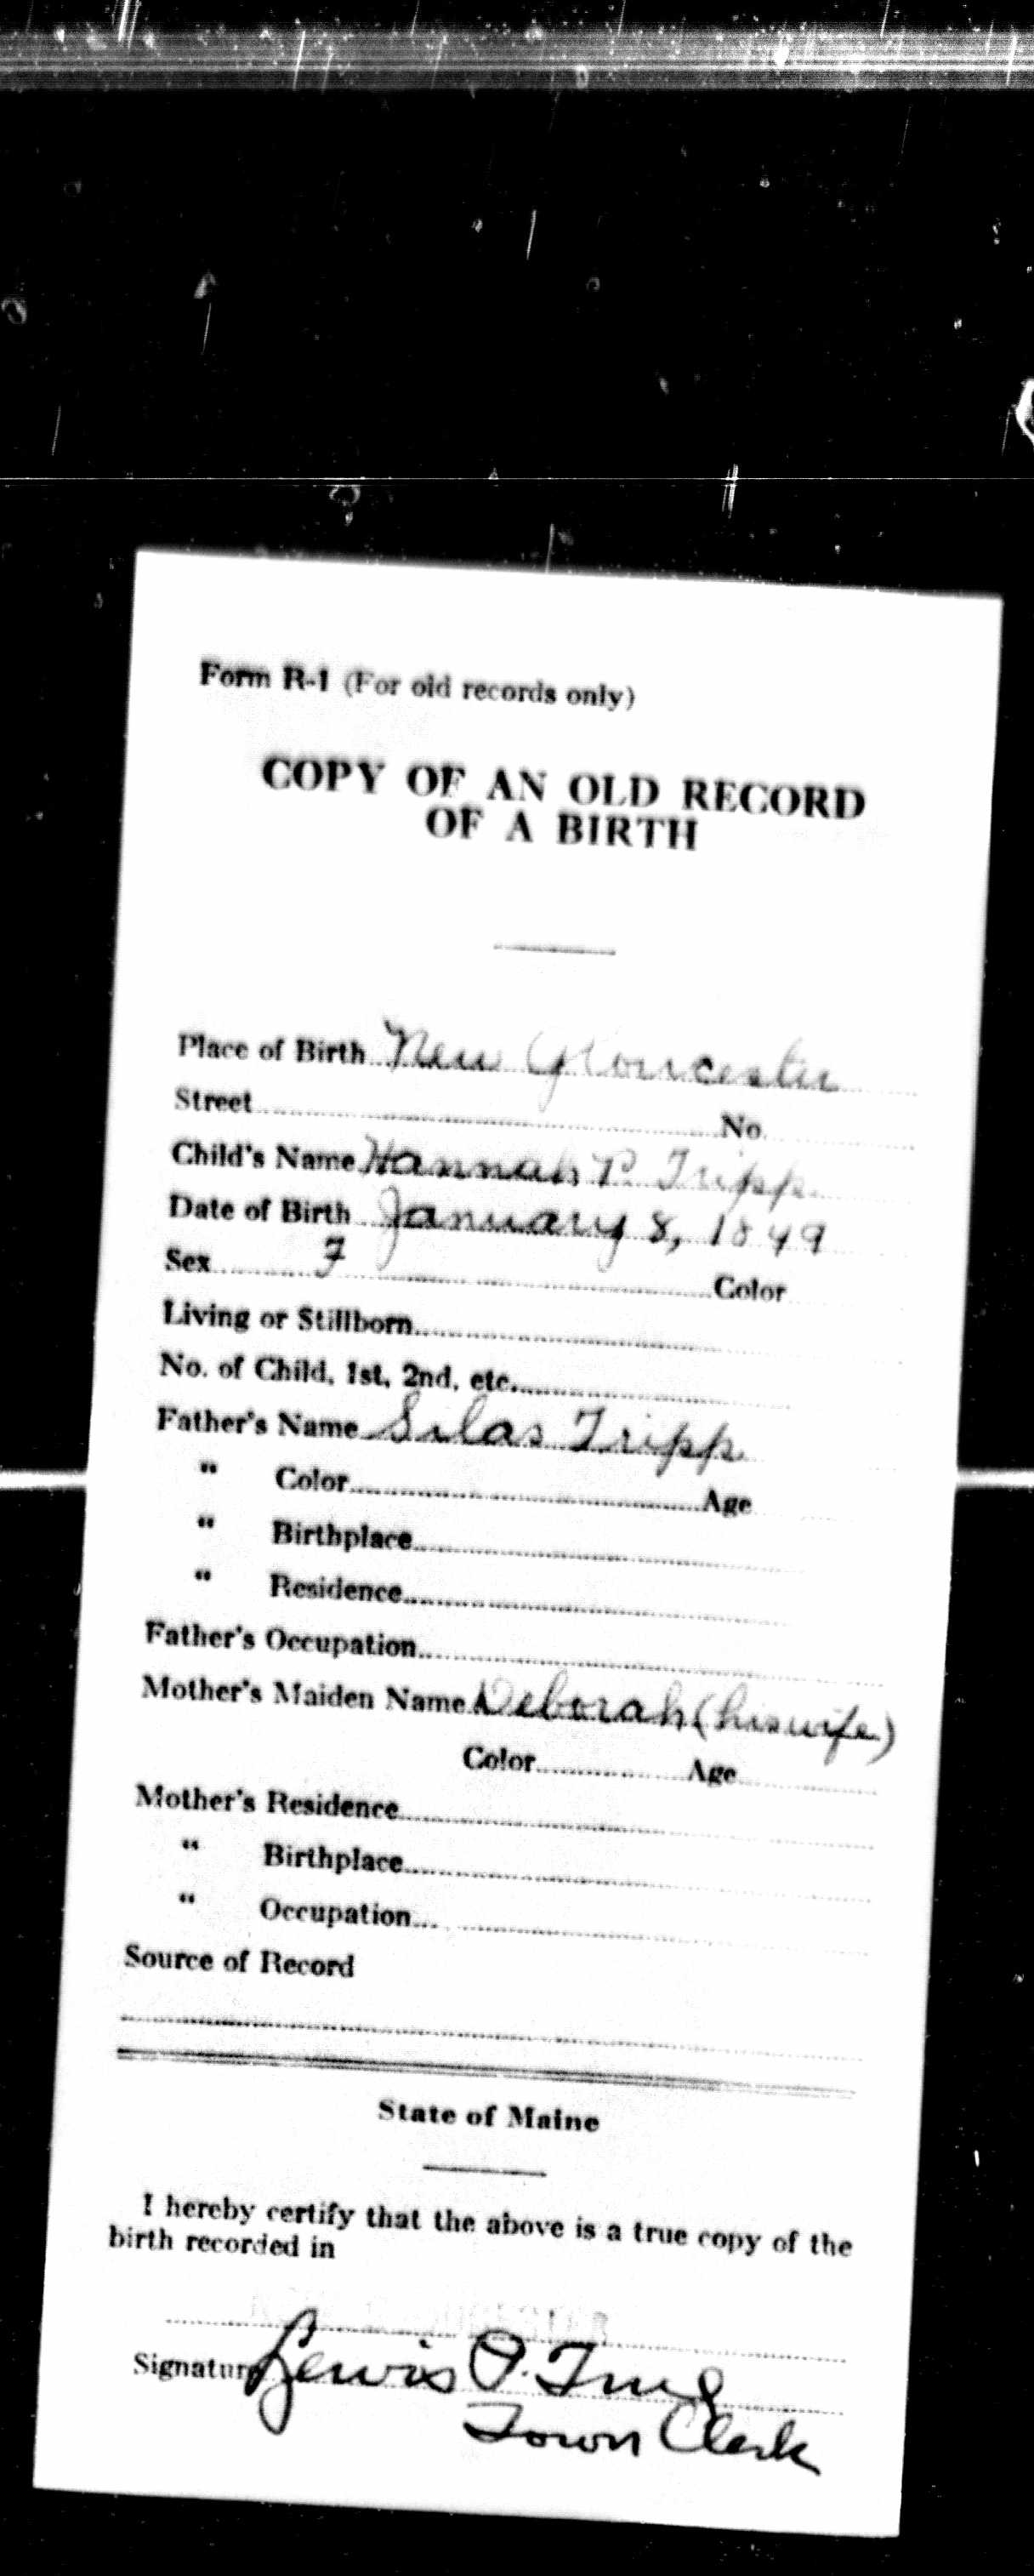 Form R-1 (For old records only)
COPY OF AN OLD RECORD
OF A BIRTH
Place of Birth New Gloucester
Street No.
Child's Name Hannah P. Tripp
Date of Birth January 8, 1849
Sex F Color
Living or Stillborn
No. of Child, 1st, 2nd, etc.
Father's Name Silas Tripp
" Color Age
" Birthplace
" Residence
Father's Occupation
Mother's Maiden Name Deborah (his wife)
Color Age
Mother's Residence
" Birthplace
" Occupation
Source of Record
State of Maine
I hereby certify that the above is a true copy of the
birth recorded in
Signature Lewis P.
Town Clerk